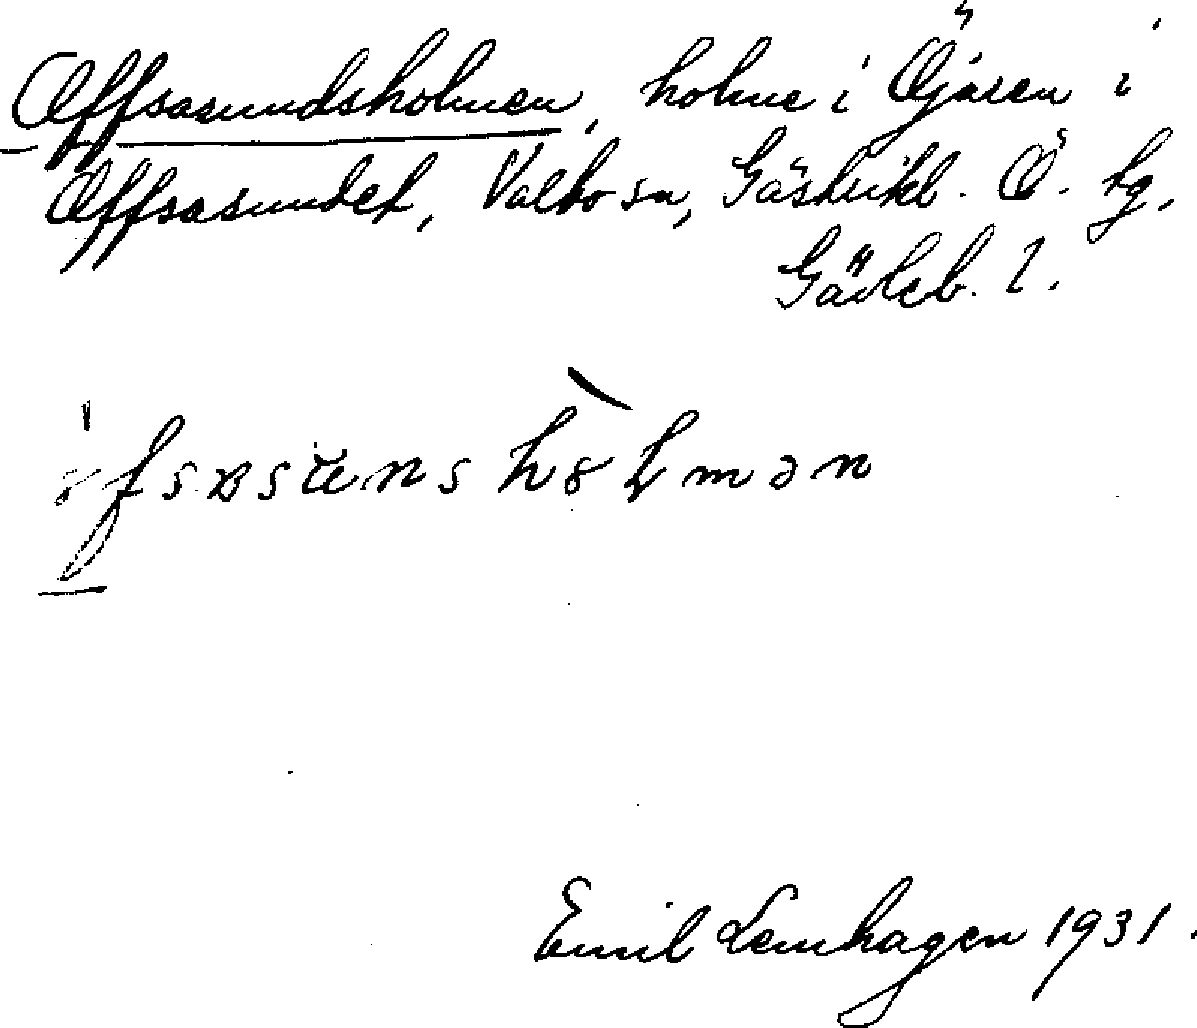 Offsasundsholmen, holme i Öjaren i
Offsasundet, Valbo sn, Gästrikl. Ö. tg,
Gävleb. l.
Emil Lemhagen 1931.